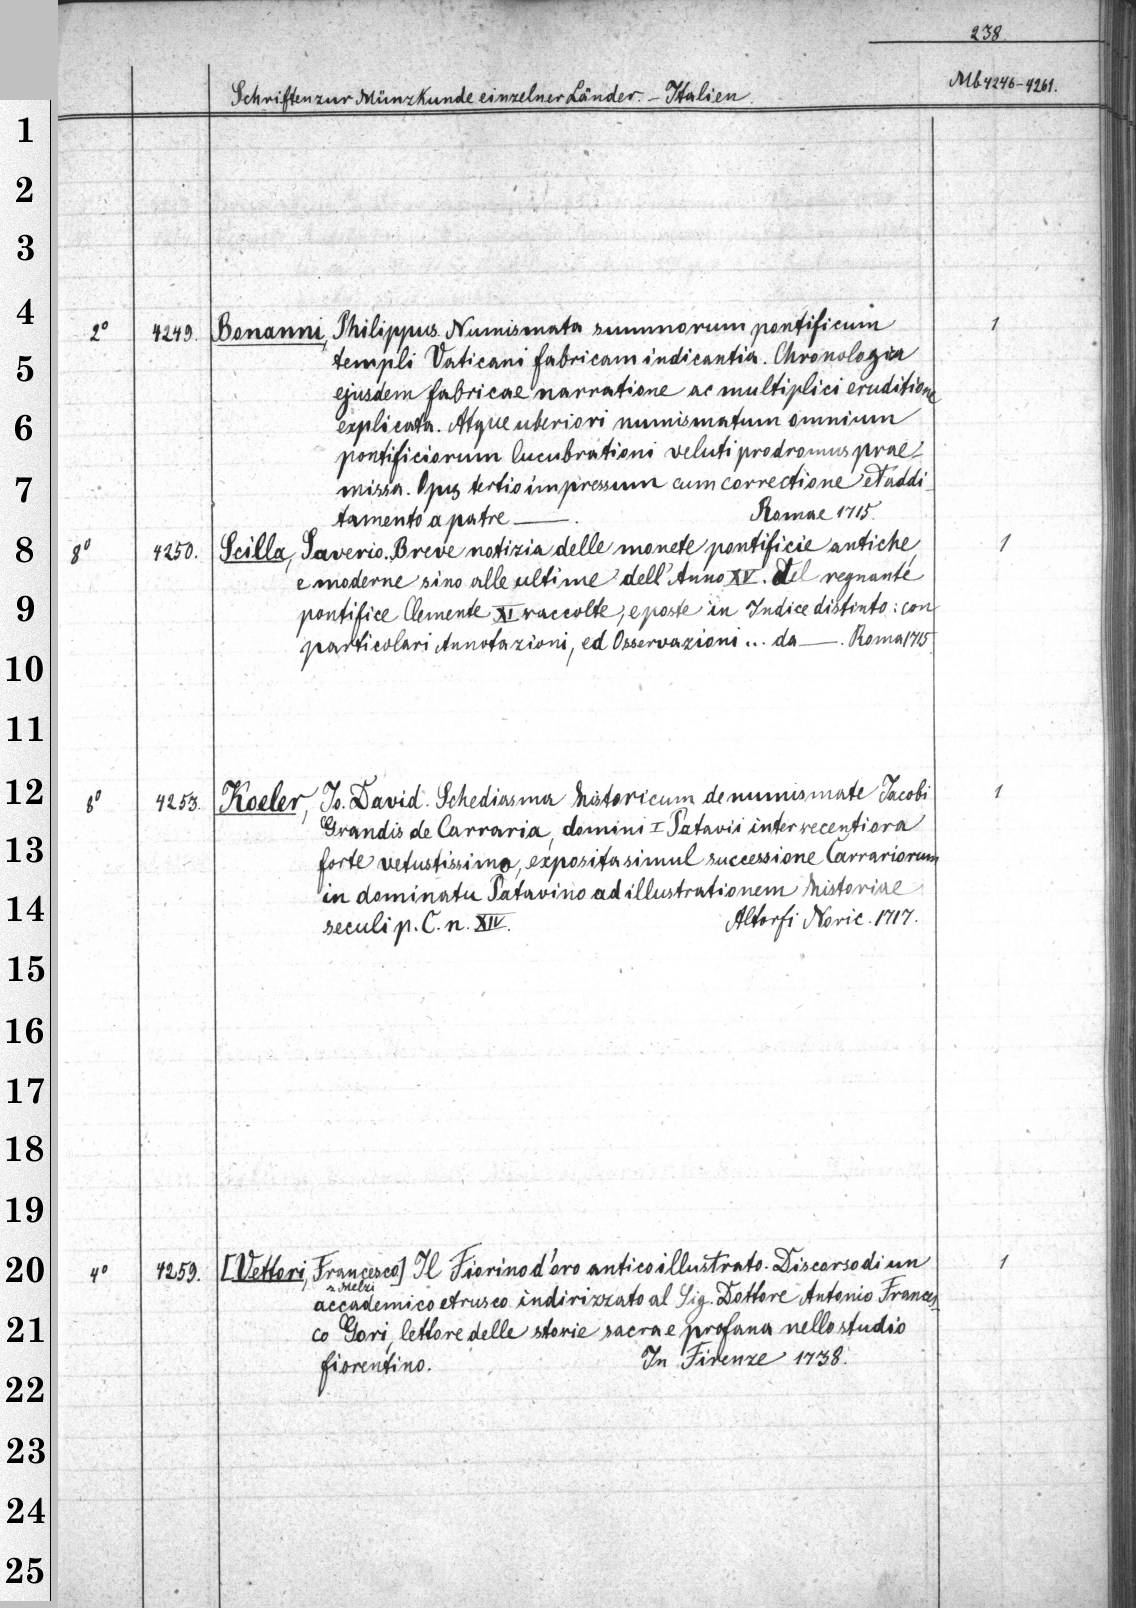 238.
Schriften zur Münzkunde einzelner Länder. – Italien.
Mb 4246–4261.
1
2
3
4
2° 4249. Bonanni, Philippus. Numismata summorum pontificum 1
templi Vaticani fabricam indicantia. Chronologia
5
ejusdem fabricae narratione ac multiplici eruditione
6
explicata. Atque uberiori numismatum omnium
pontificiorum lucubrationi veluti prodromus prae-
7
missa. Opus tertio impressum cum correctione et addi-
tamento a patre —. Romae 1715.
8
8° 4250. Scilla, Saverio. Breve notizia delle monete pontificie antiche 1
e moderne sino alle ultime dell' Anno XV. del regnante
9
pontifice Clemente XI raccolte, e poste in Indice distinto: con
particolari Annotazioni, ed Osservazioni ... da —. Roma 1715.
10
11
12
8° 4253. Koeler, Jo. David. Schediasma historicum de numismate Jacobi 1
Grandis de Carraria, domini I Patavii inter recentiora
13
forte vetustissimo, exposita simul successione Carrariorum
in dominatu Patavino ad illustrationem historiae
14
seculi p. C. n. XIV. Altorfi Noric. 1717.
15
16
17
18
19
20
4° 4259. [Vettori, Francesco] Il Fiorino d'oro antico illustrato. Discorso di un 1
n. Melzi
accademico etrusco indirizzato al Sig. Dottore Antonio Frances-
21
co Gori, lettore delle storie sacra e profana nello studio
fiorentino. In Firenze 1738.
22
23
24
25